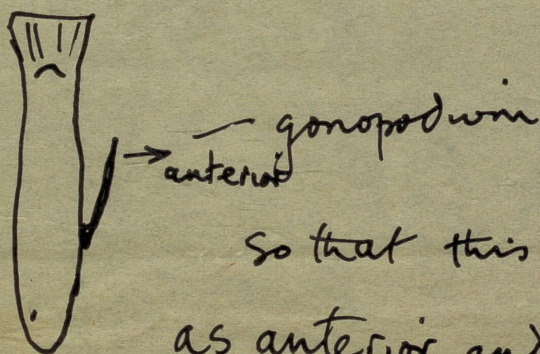 — gonopodium
anterior
so that this
as anterior and